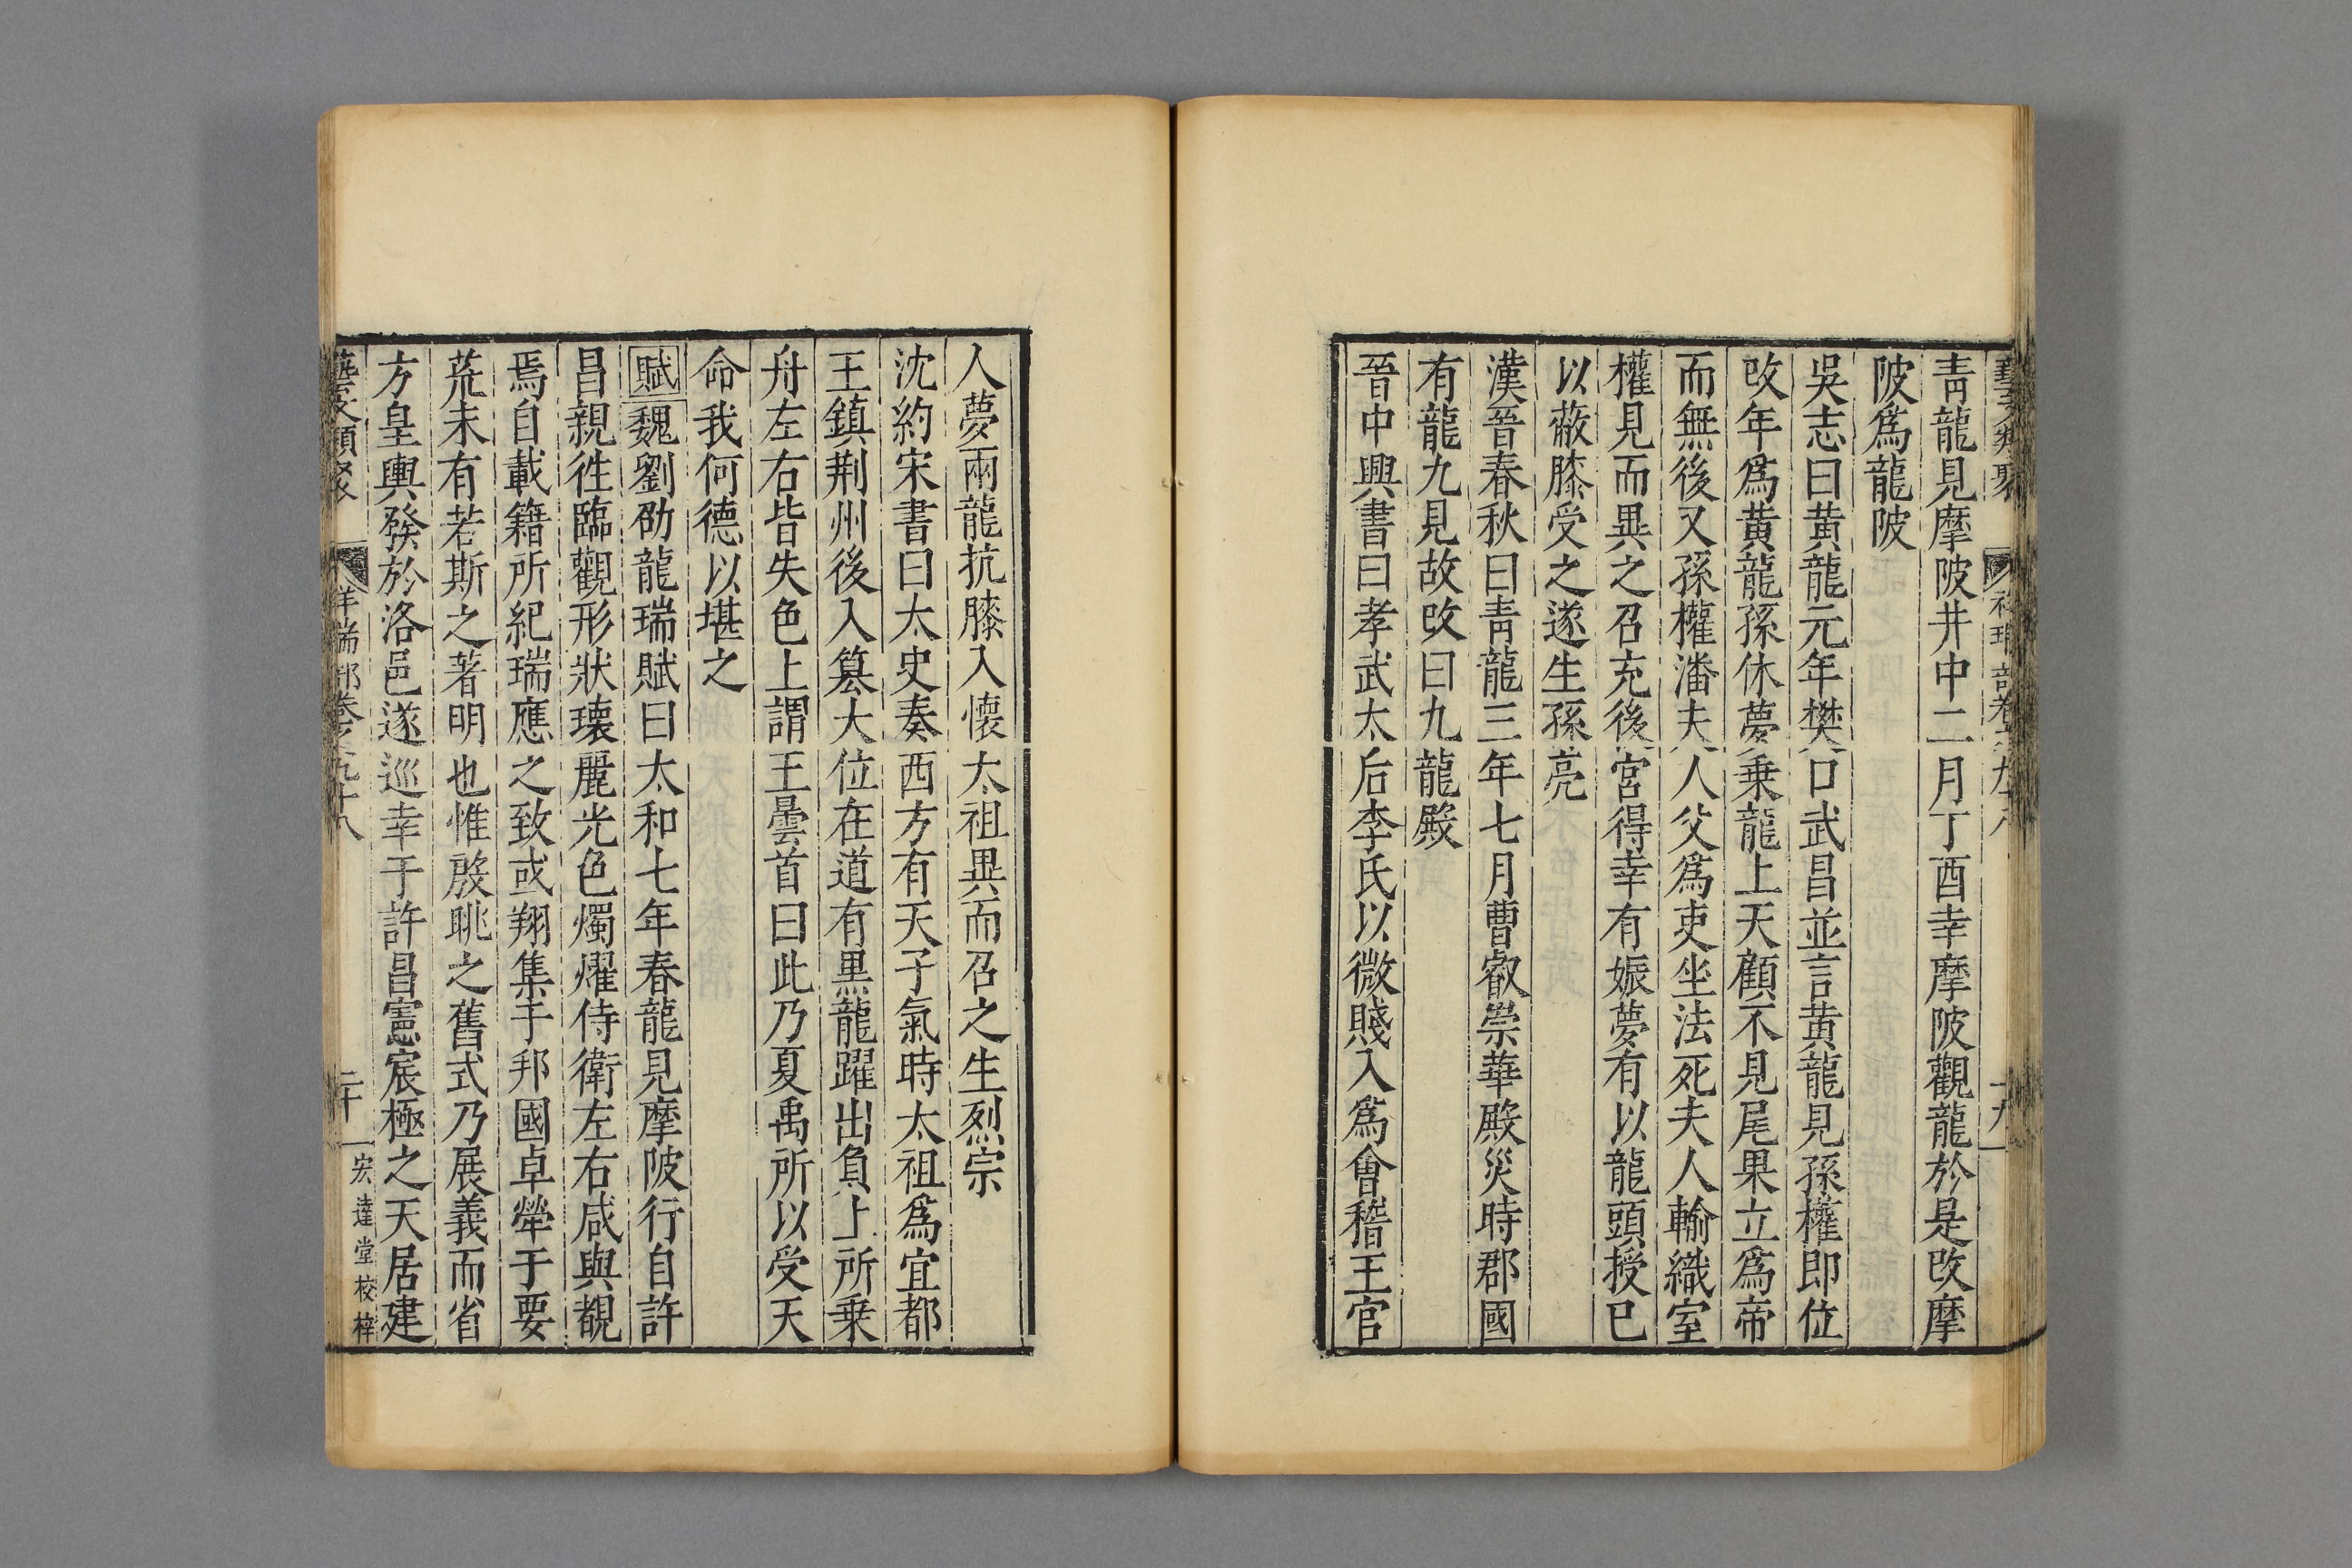 藝文類聚 祥瑞部卷之九十八 十九
青龍見摩陂井中二月丁酉幸摩陂觀龍於是改摩
陂爲龍陂
吳志曰黃龍元年樊口武昌並言黃龍見孫權即位
改年爲黃龍孫休夢乗龍上天顧不見尾果立爲帝
而無後又孫權潘夫人父爲吏坐法死夫人輸織室
權見而異之召充後宮得幸有娠夢有以龍頭授已
以蔽膝受之遂生孫亮
漢晉春秋曰青龍三年七月曹叡崇華殿災時郡國
有龍九見故改曰九龍殿
晉中興書曰孝武太后李氏以微賤入爲會稽王官
人夢兩龍抗膝入懷太祖異而召之生烈宗
沈約宋書曰太史奏西方有天子氣時太祖爲宜都
王鎮荆州後入篡大位在道有黒龍躍出負上所乗
舟左右皆失色上謂王曇首曰此乃夏禹所以受天
命我何德以堪之
賦 魏劉劭龍瑞賦曰太和七年春龍見摩陂行自許
昌親徃臨觀形狀瓌麗光色燭燿侍衛左右咸與覩
焉自載籍所紀瑞應之致或翔集于邦國卓犖于要
荒未有若斯之著明也惟殷眺之舊式乃展義而省
方皇輿發於洛邑遂巡幸于許昌憲宸極之天居建
藝文類聚 祥瑞部卷之九十八 二十 宏達堂校梓